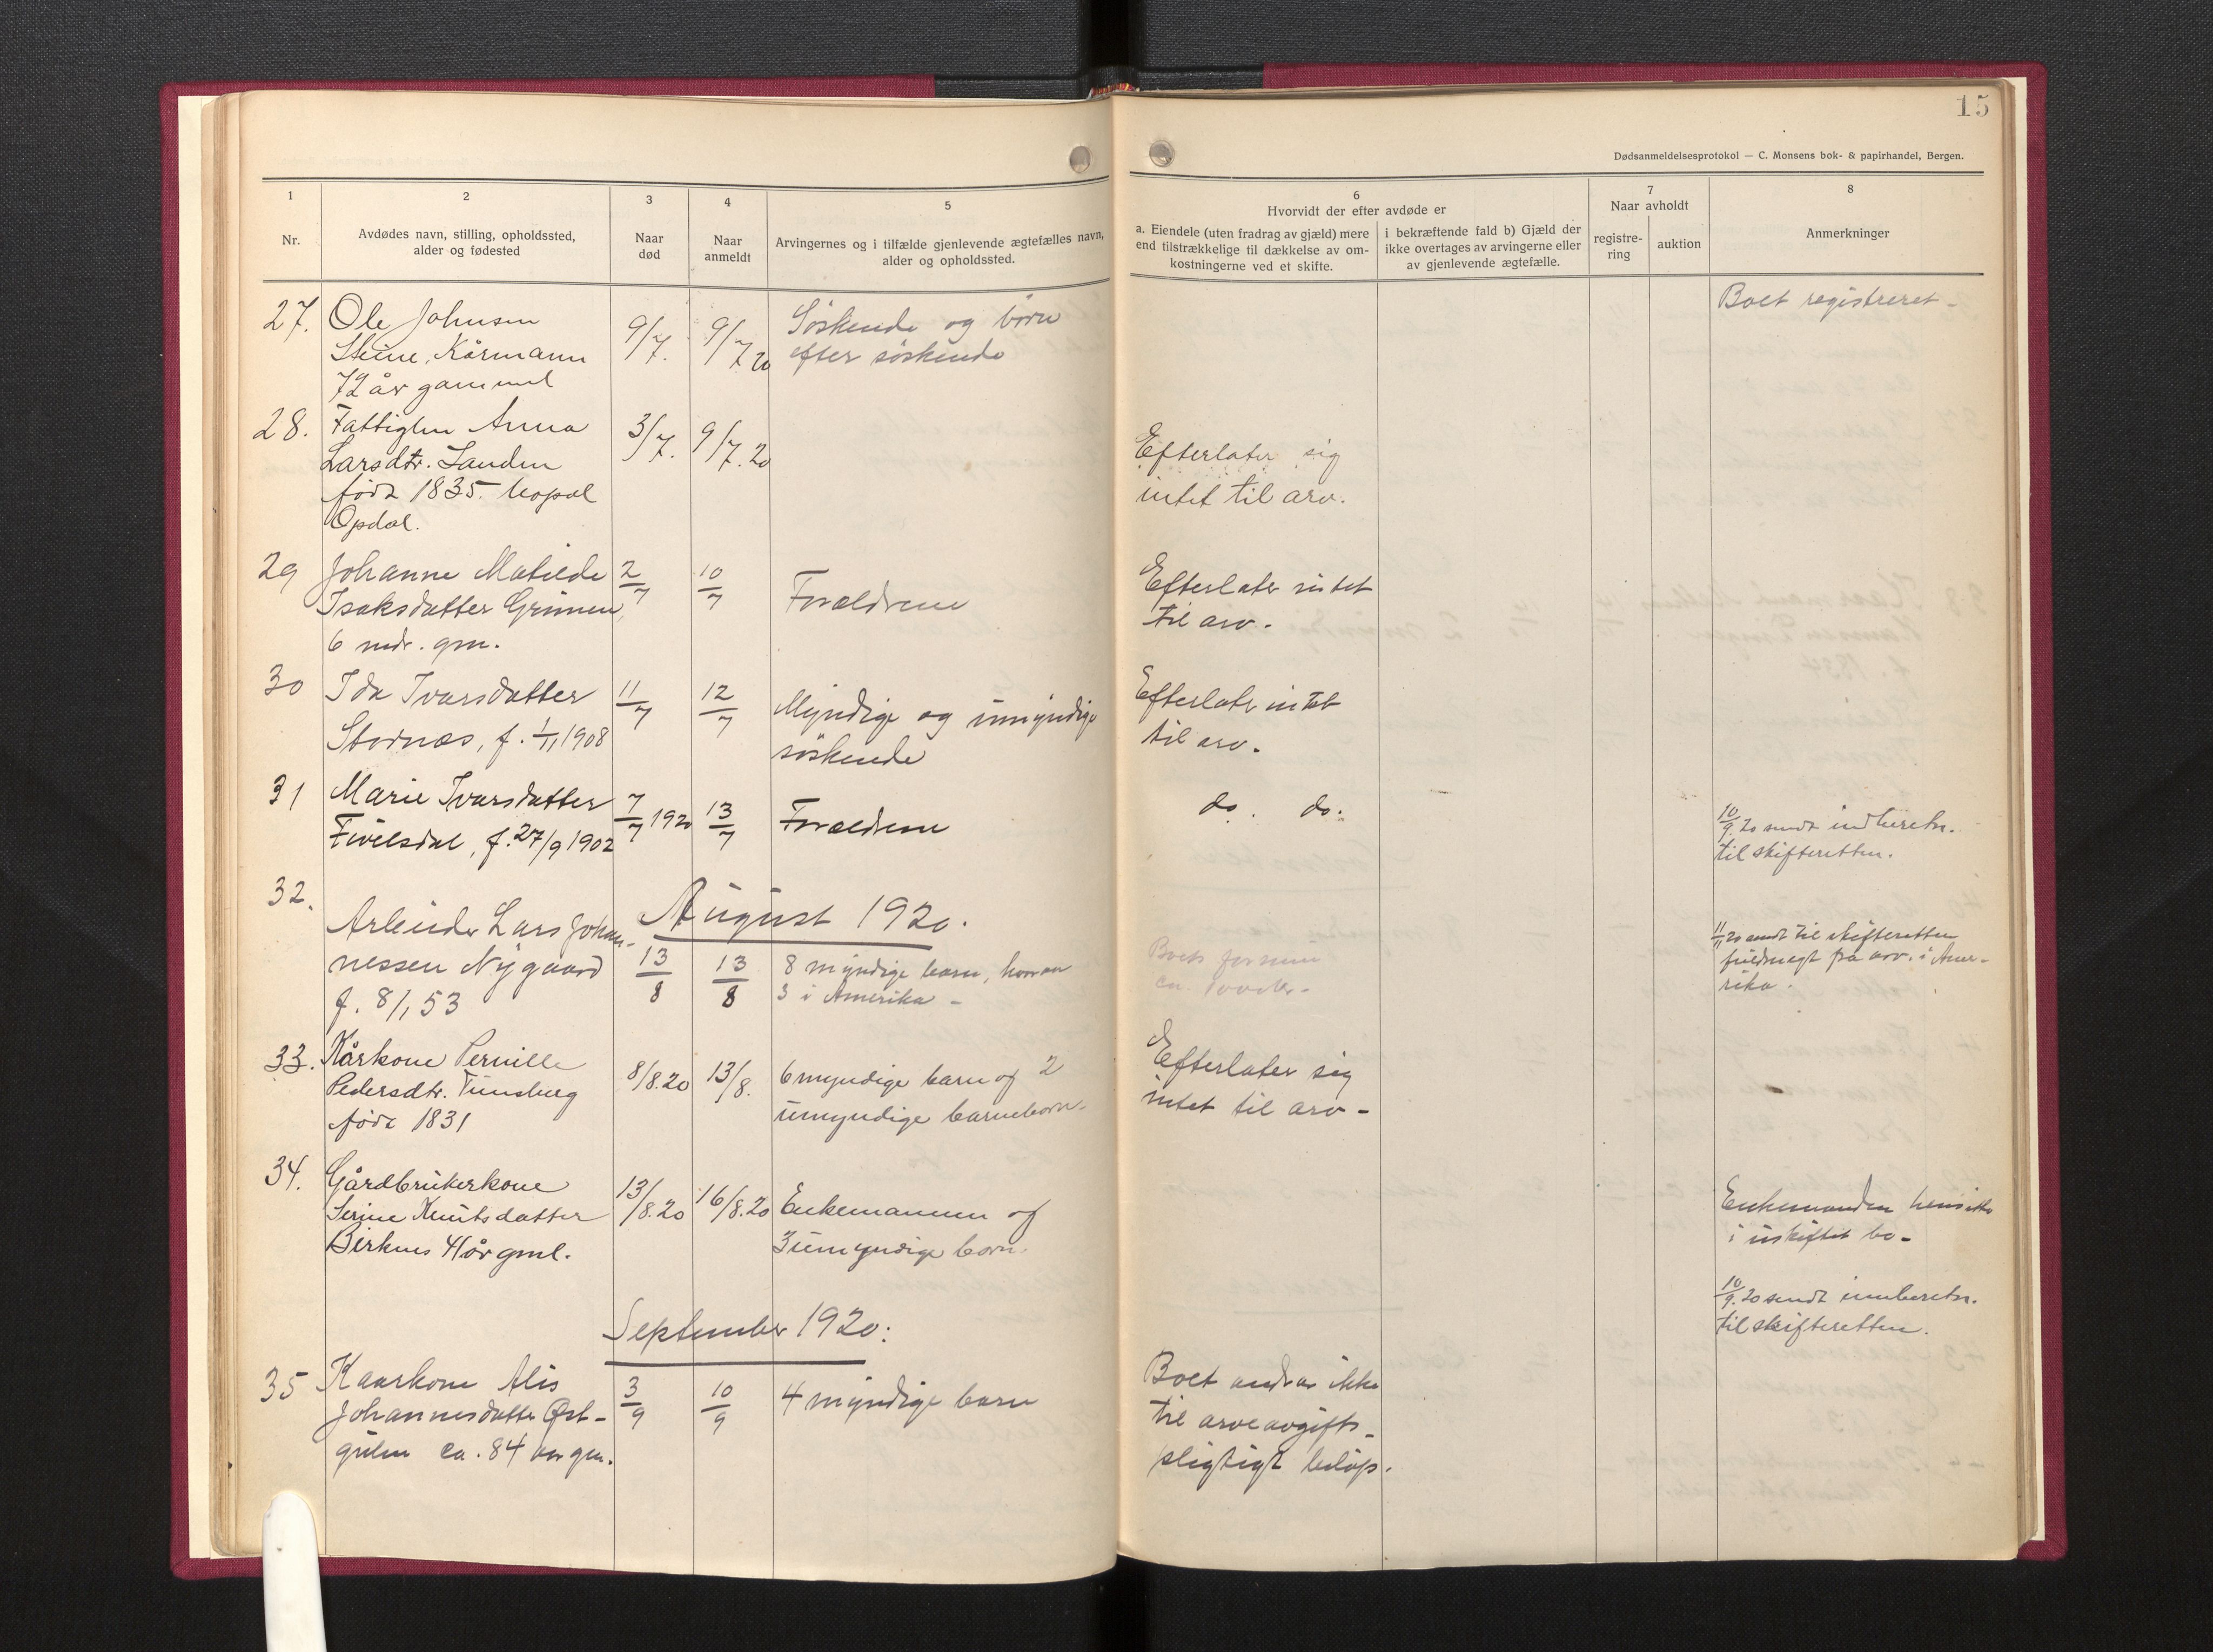 15
Dødsanmeldelsesprotokol — C. Monsens bok- & papirhandel, Bergen.
1
Nr.
2
Avdødes navn, stilling, opholdssted,
alder og fødested
3
Naar
død
4
Naar
anmeldt
5
Arvingernes og i tilfælde gjenlevende ægtefælles navn,
alder og opholdssted.
6
Hvorvidt der efter avdøde er
a. Eiendele (uten fradrag av gjæld) mere
end tilstrækkelige til dækkelse av om-
kostningerne ved et skifte.
i bekræftende fald b) Gjæld der
ikke overtages av arvingerne eller
av gjenlevende ægtefælle.
7
Naar avholdt
registre-
ring
auktion
8
Anmerkninger
27.
Ole Johnsen
Steine, Kårmann
72 år gammel
9/7.
9/7 20
Söskende og börn
efter söskende
Boet registreret -
28.
Fattiglem Anna
Larsdtr. Sanden
född 1835. bopæl
Opdal.
3/7.
9/7. 20
Efterlater sig
intet til arv.
29
Johanne Matilde
Isaksdatter Grimen,
6 mdr. gm.
2/7
10/7
Forældrene
Efterlater intet
til arv.
30
Ida Ivarsdatter
Stornæs, f. 1/11 1908
11/7
12/7
Myndige og umyndige
söskende
Efterlatr intet
til arv.
31
Marie Ivarsdatter
Fivelsdal, f. 27/9 1902
7/7 1920
13/7
Forældrene
do. do.
10/9. 20 sendt indberetn.
til skifteretten.
August 1920.
32.
Arbeider Lars Johan-
nessen Nygaard
f. 8/1 53
13/8
13/8
8 myndige barn, hvorav
3 i Amerika -
Boets formue
ca.
11/11 20 sendt til skifteretten
fuldmagt fra arv. i Ame-
rika.
33.
Kårkone Pernille
Pedersdtr. Tunsberg
född 1831
8/8.20
13/8.
6 myndige barn og 2
umyndige barneborn-
Efterlater sig
intet til arv -
34.
Gårdbrukerkone
Serine Knutsdatter
Birknes 41 år gml.
13/8.20
16/8.20
Enkemannen og
3 umyndige born.
Enkemanden hensitter
i uskiftet bo-
10/9. 20 sendt innberetn.
til skifteretten.
September 1920:
35
Kaarkone Alis
Johannesdatter Øst-
gulen ca. 84 aar gm.
3/9
10/9
4 myndige barn
Boet andrar ikke
til arveavgifts-
pligtigt beløp.